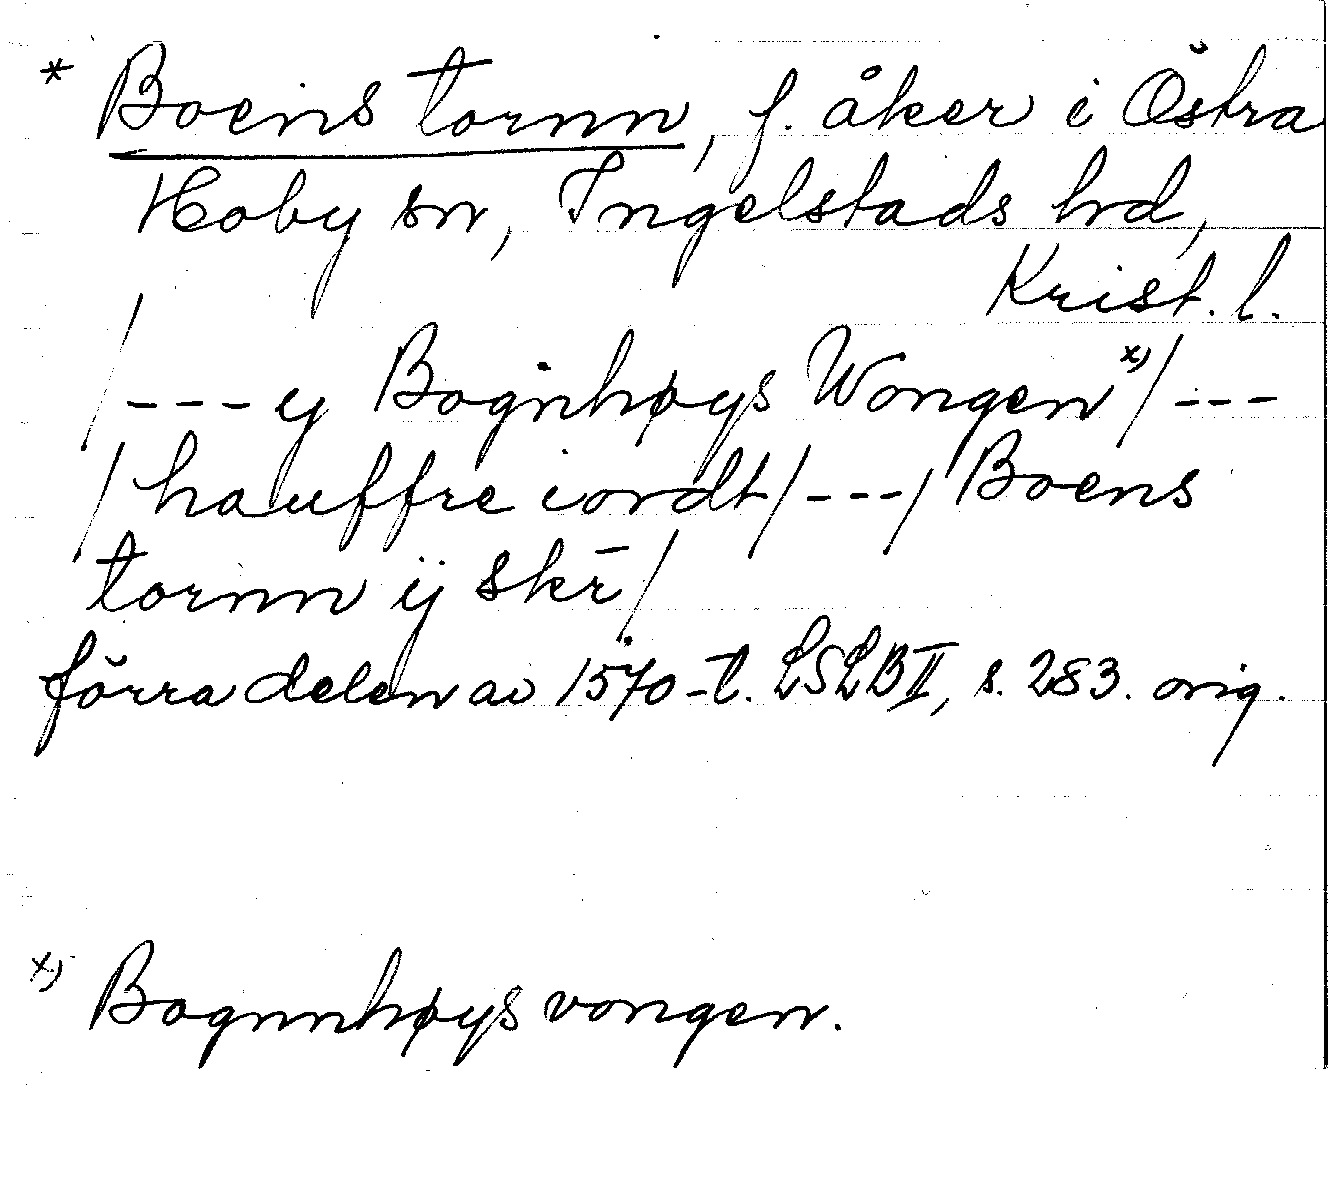 * Boens tornn, f. åker i Östra
Hoby sn, Ingelstads hd,
Krist. l.
/---y Bognhøys Wongen x)/---
/hauffre iordt/---/Boens
tornn ij skr̄/
förra delen av 1570-t. LSLB II, s. 283. orig.
x) Bognnhøys vongen.